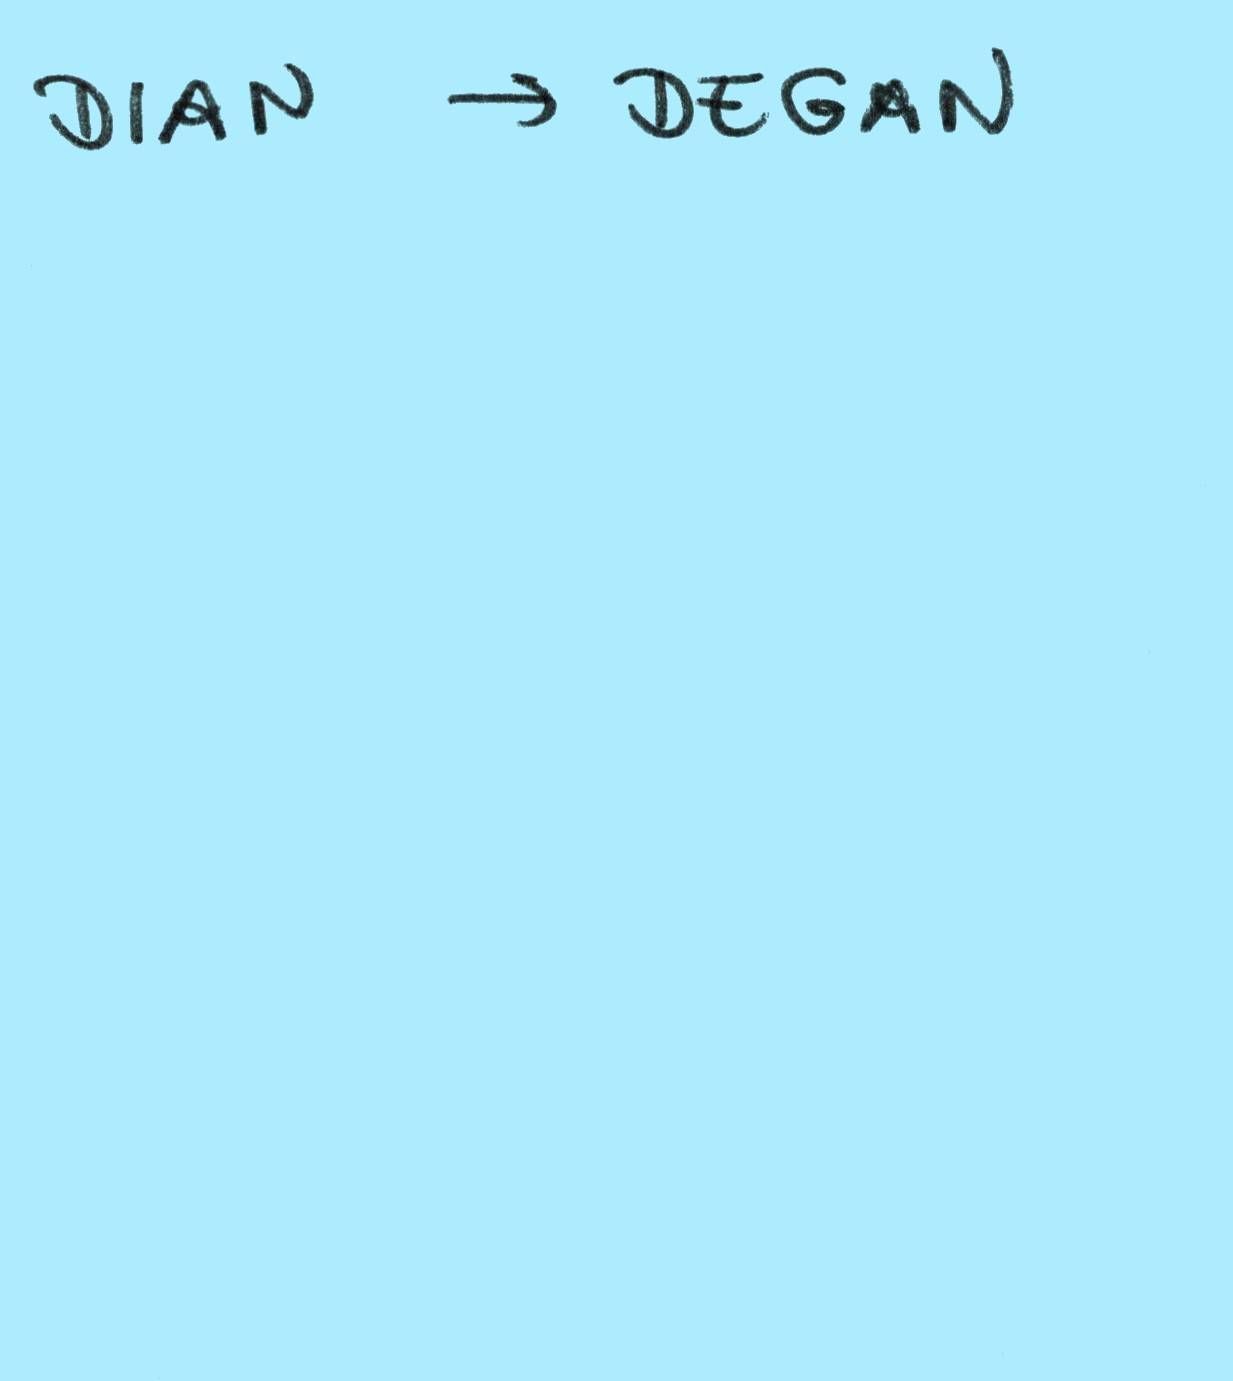 DIAN → DEGAN